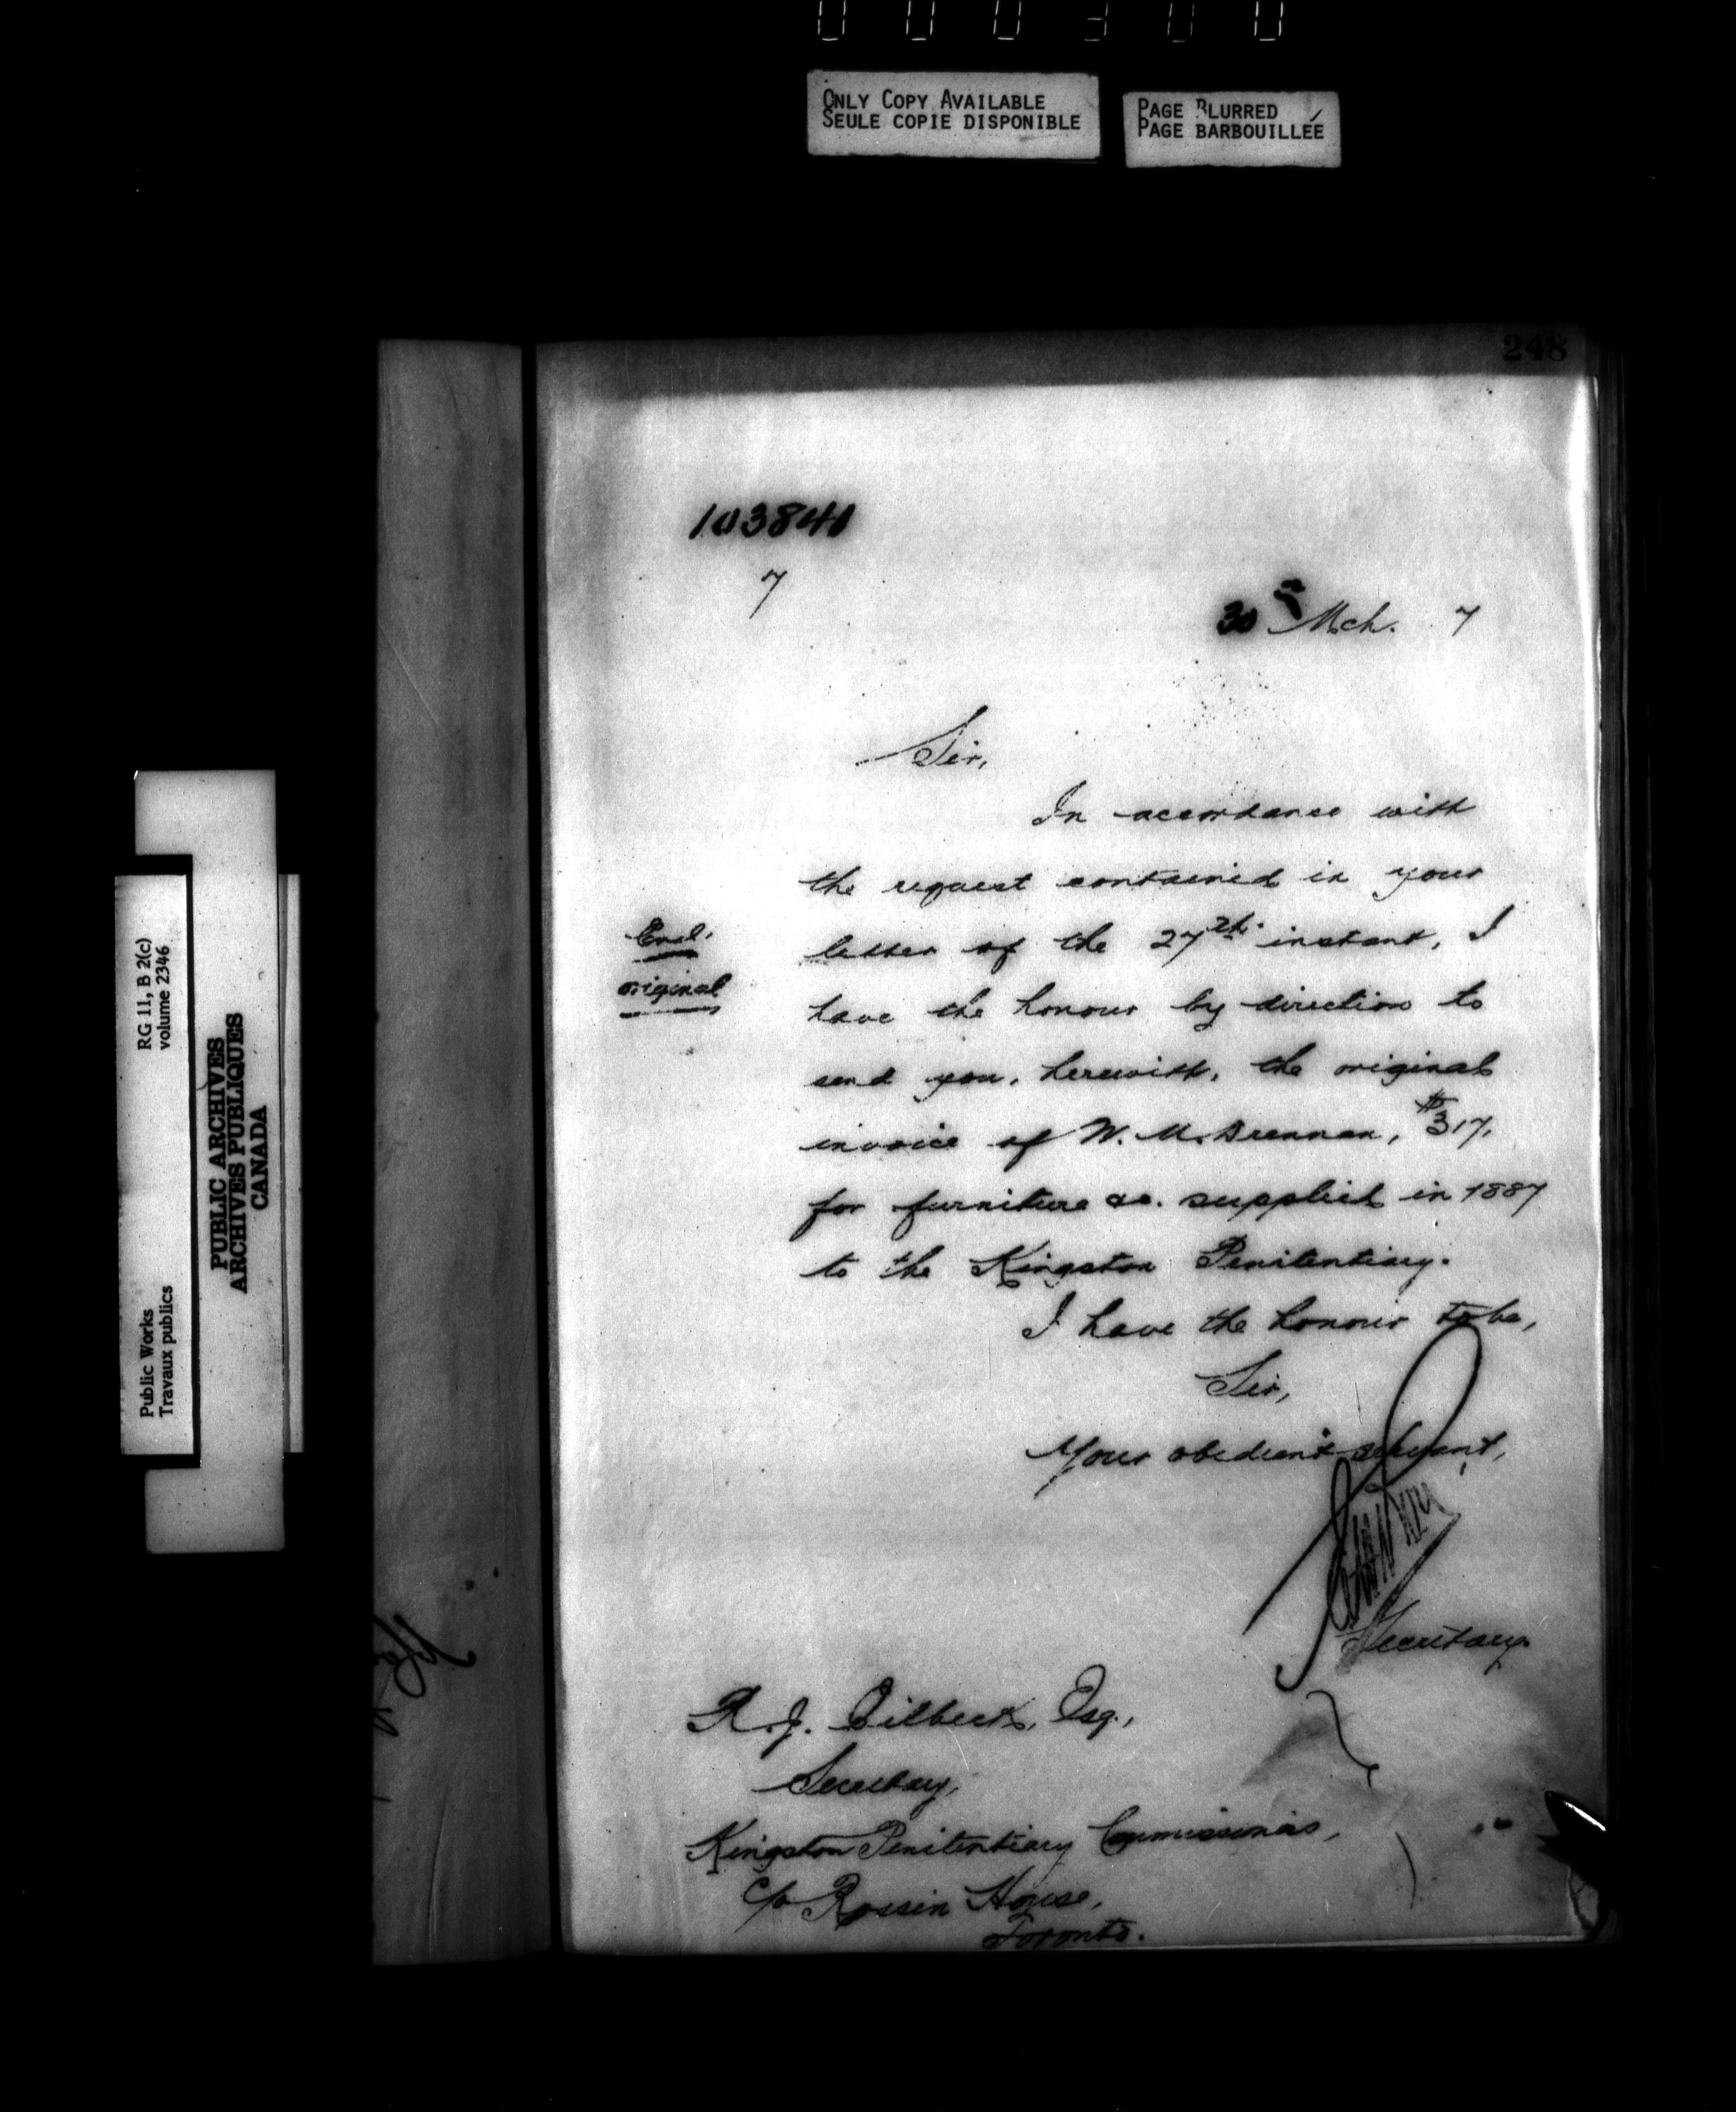 ONLY COPY AVAILABLE
SEULE COPIE DISPONIBLE
PAGE BLURRED
PAGE BARBOUILLÉE
248
103840
7
30th Mch. 7
Sir,
In accordance with
the request contained in your
letter of the 27th. instant, I
Encl.
original
have the honour by direction to
send you, herewith, the original
invoice of W. M. Drennan, $317.
for furniture &c. supplied in 1887
to the Kingston Penitentiary.
I have the honour to be,
Sir,
Your obedient servant,
Secretary
R. J. Gilbert, Esq.,
Secretary,
Kingston Penitentiary Commissioners,
c/o Rossin House,
Toronto.
RG 11, B 2(c)
volume 2346
Public Works
Travaux publics
PUBLIC ARCHIVES
ARCHIVES PUBLIQUES
CANADA